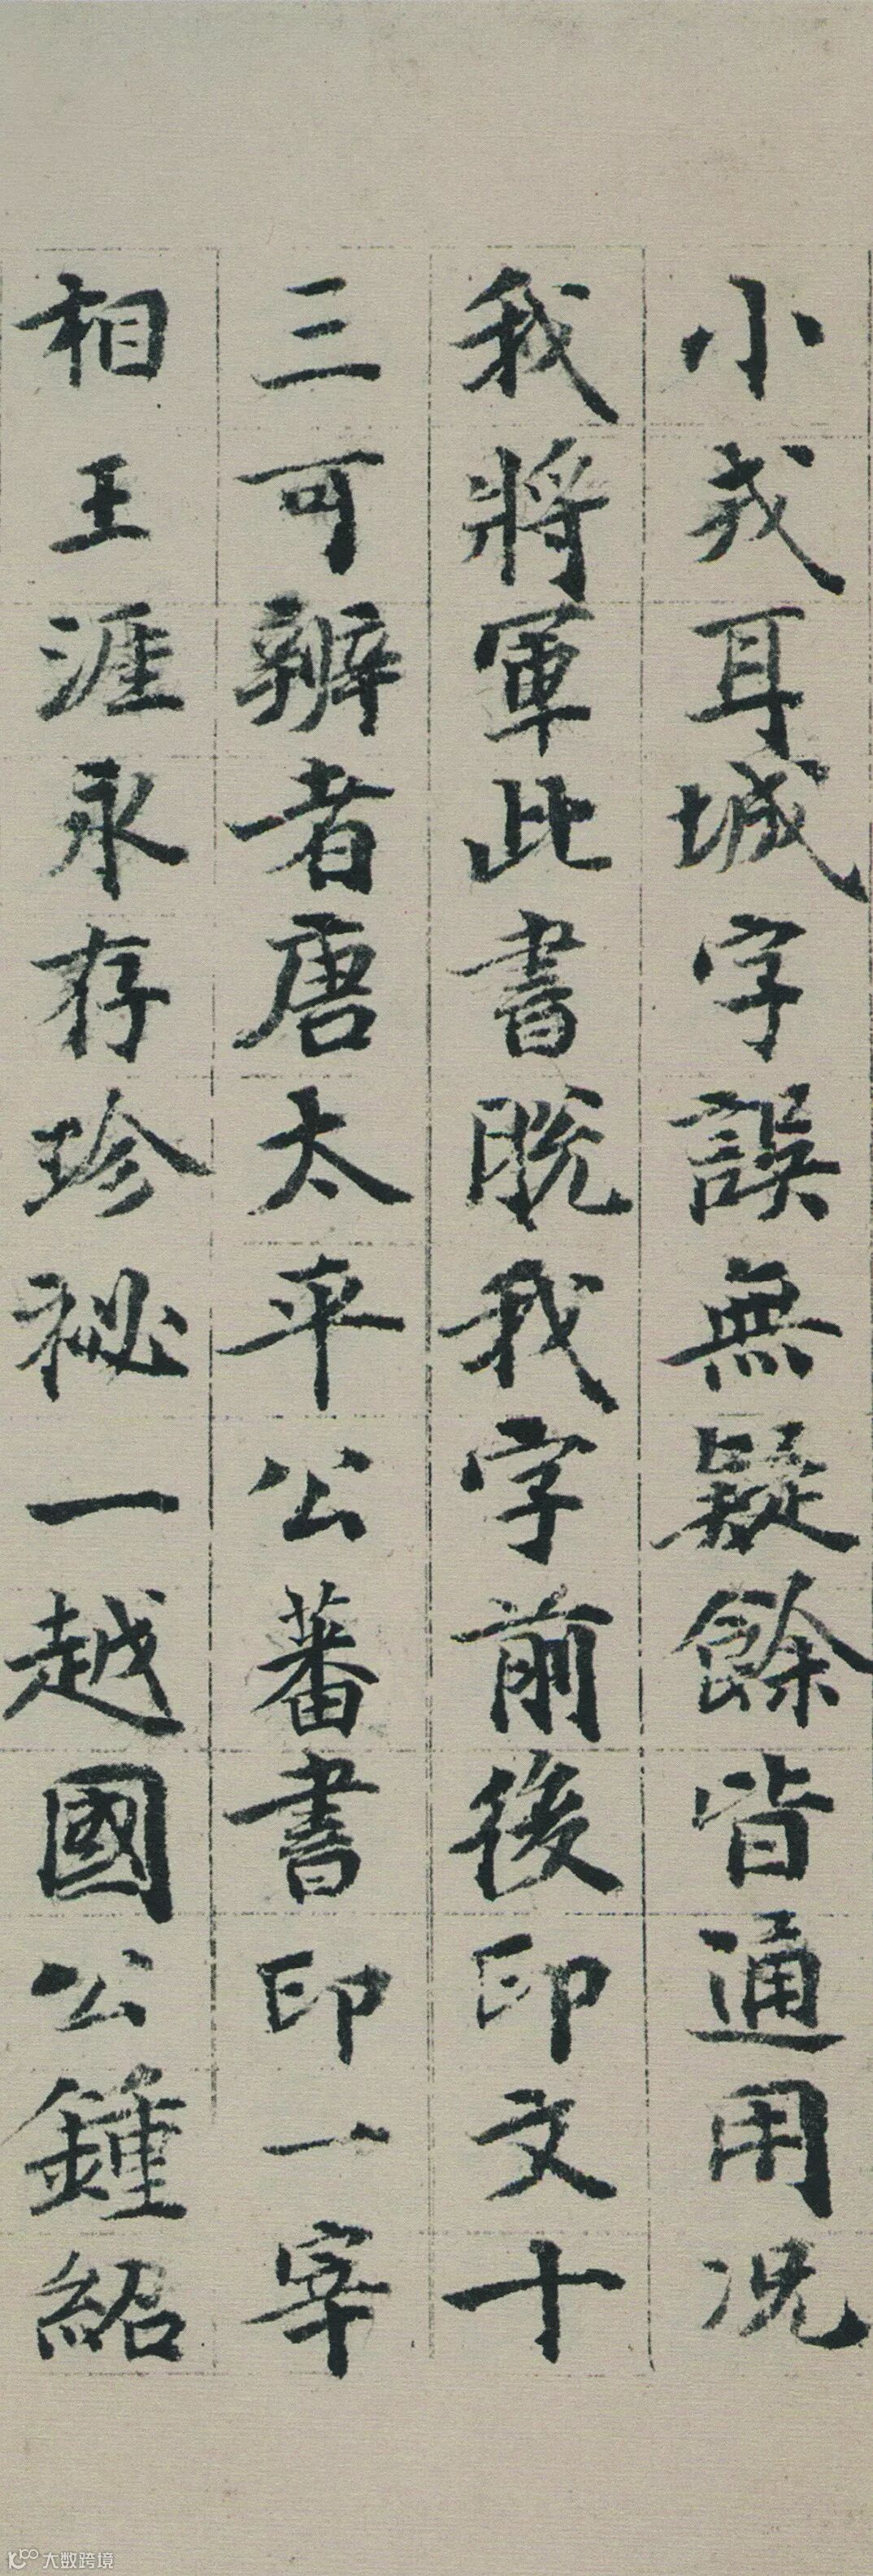 小戎耳城字誤無疑餘皆通用况
我將軍此書脫我字前後印文十
三可辨者唐太平公蕃書印一宰
相王涯永存珍祕一越國公鍾紹
大数跨境